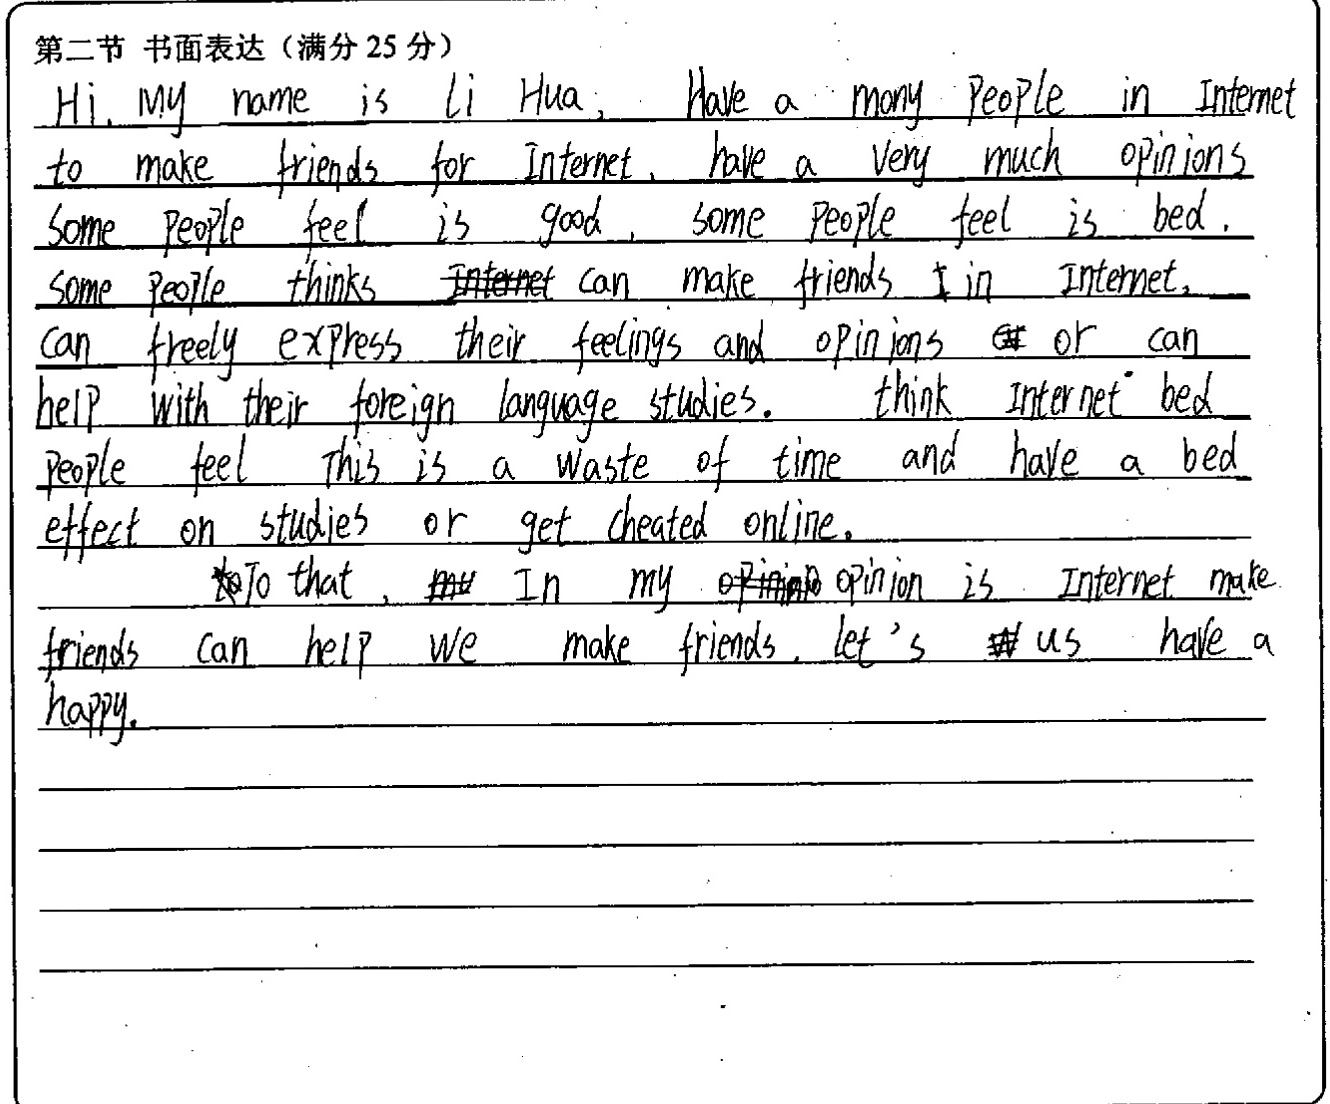 第二节 书面表达（满分 25 分）
Hi. My name is Li Hua, Have a mony People in Internet
to make friends for Internet. have a very much opinions
some People feel is good, some People feel is bed.
some People thinks Internet can make friends I in Internet.
can freely express their feelings and opinions or can
help with their foreign language studies. think Internet bed
People feel This is a waste of time and have a bed
effect on studies or get cheated online.
To that, In my opinion is Internet make
friends can help we make friends. let's us have a
happy.